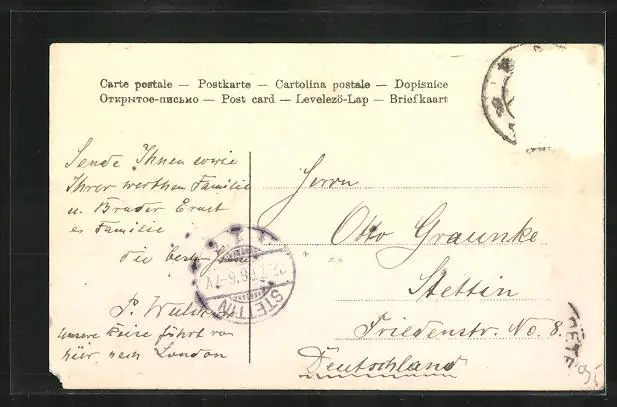 Carte postale — Postkarte — Cartolina postale — Dopisnice
Открытое-письмо — Post card — Levelező-Lap — Briefkaart
Sende Ihnen sowie
Ihrer werthen Familie
u. Bruder Ernst
Familie
die besten
unsere Reise führt von
hier nach London
Herrn
Otto Graunke
Stettin
Friedenstr. No. 8.
Deutschland
STETTIN